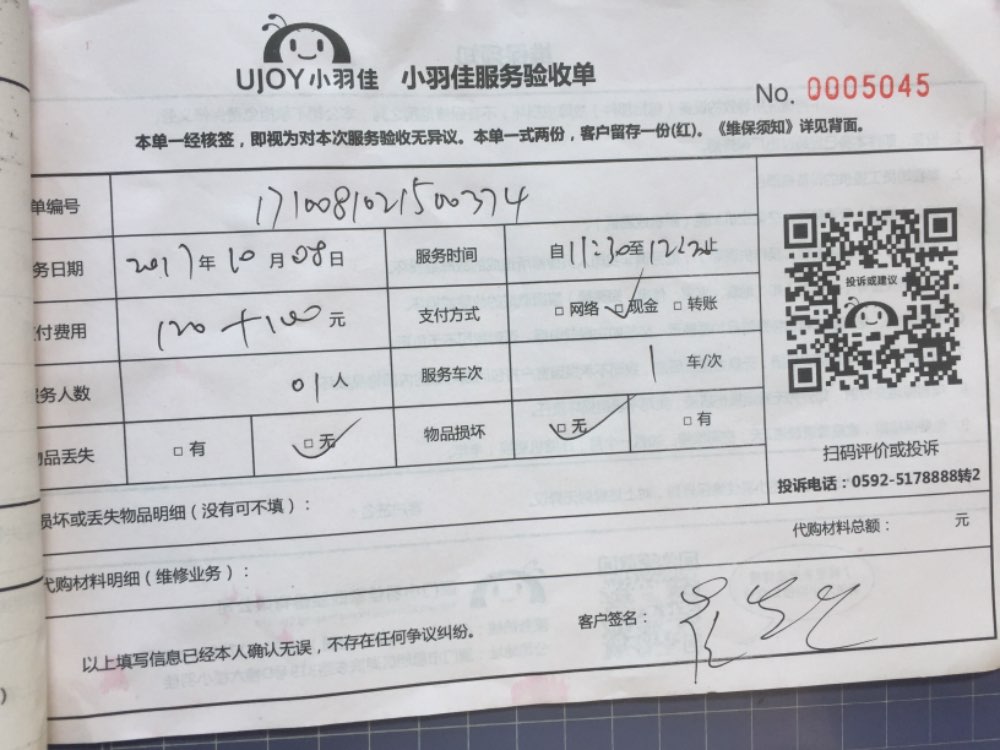 UJOY小羽佳 小羽佳服务验收单
No. 0005045
本单一经核签，即视为对本次服务验收无异议。本单一式两份，客户留存一份(红)。《维保须知》详见背面。
单编号 1710081021500374
务日期 2017年10月08日 服务时间 自11:30至12:20止
付费用 120+100元 支付方式 □网络 □现金 □转账
服务人数 01人 服务车次 1车/次
物品丢失 □有 □无 物品损坏 □无 □有
投诉或建议
扫码评价或投诉
投诉电话：0592-5178888转2
损坏或丢失物品明细（没有可不填）：
代购材料总额： 元
代购材料明细（维修业务）：
客户签名：
以上填写信息已经本人确认无误，不存在任何争议纠纷。